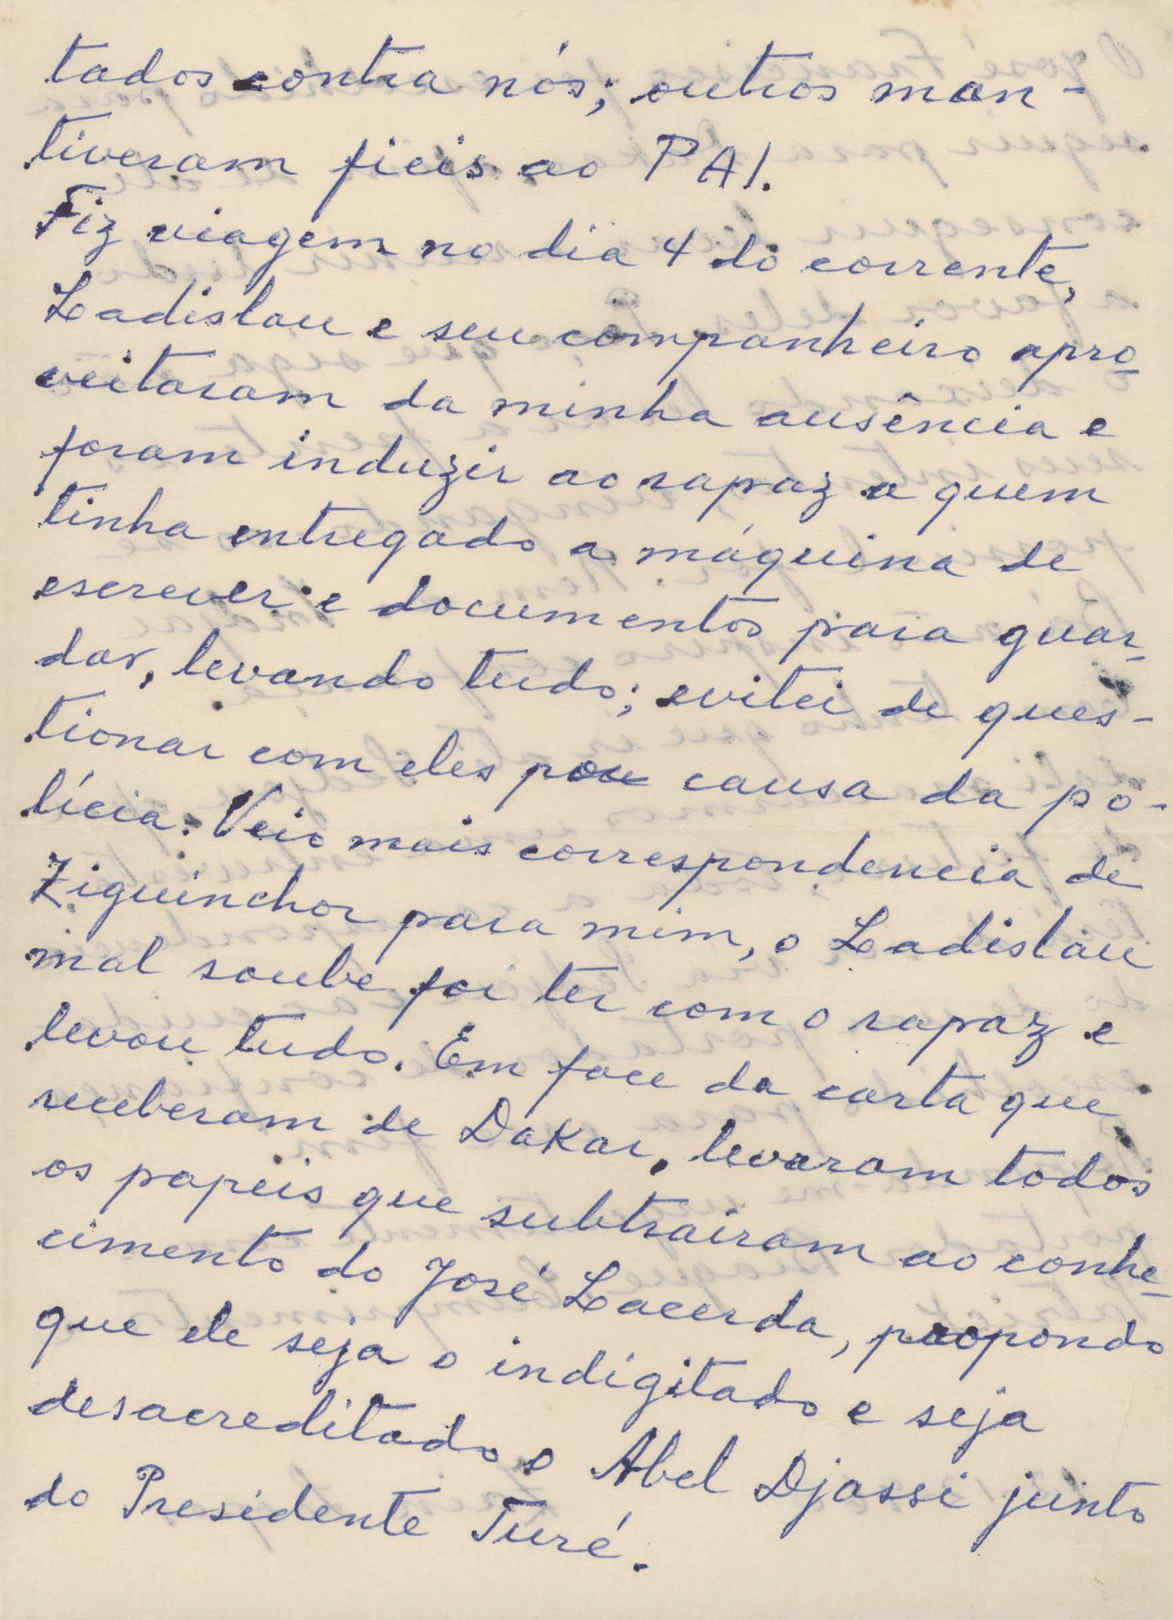 tados contra nós; outros man-
tiveram fieis ao PAI.
Fiz viagem no dia 4 do corrente,
Ladislau e seu companheiro apro-
veitaram da minha ausência e
foram induzir ao rapaz a quem
tinha entregado a máquina de
escrever e documentos para guar-
dar, levando tudo; evitei de ques-
tionar com eles por causa da po-
lícia. Veio mais correspondencia de
Ziguinchor para mim, o Ladislau
mal soube foi ter com o rapaz e
levou tudo. Em face da carta que
receberam de Dakar, levaram todos
os papeis que subtrairam ao conhe-
cimento do José Lacerda, propondo
que ele seja o indigitado e seja
desacreditado o Abel Djassi junto
do Presidente Turé.